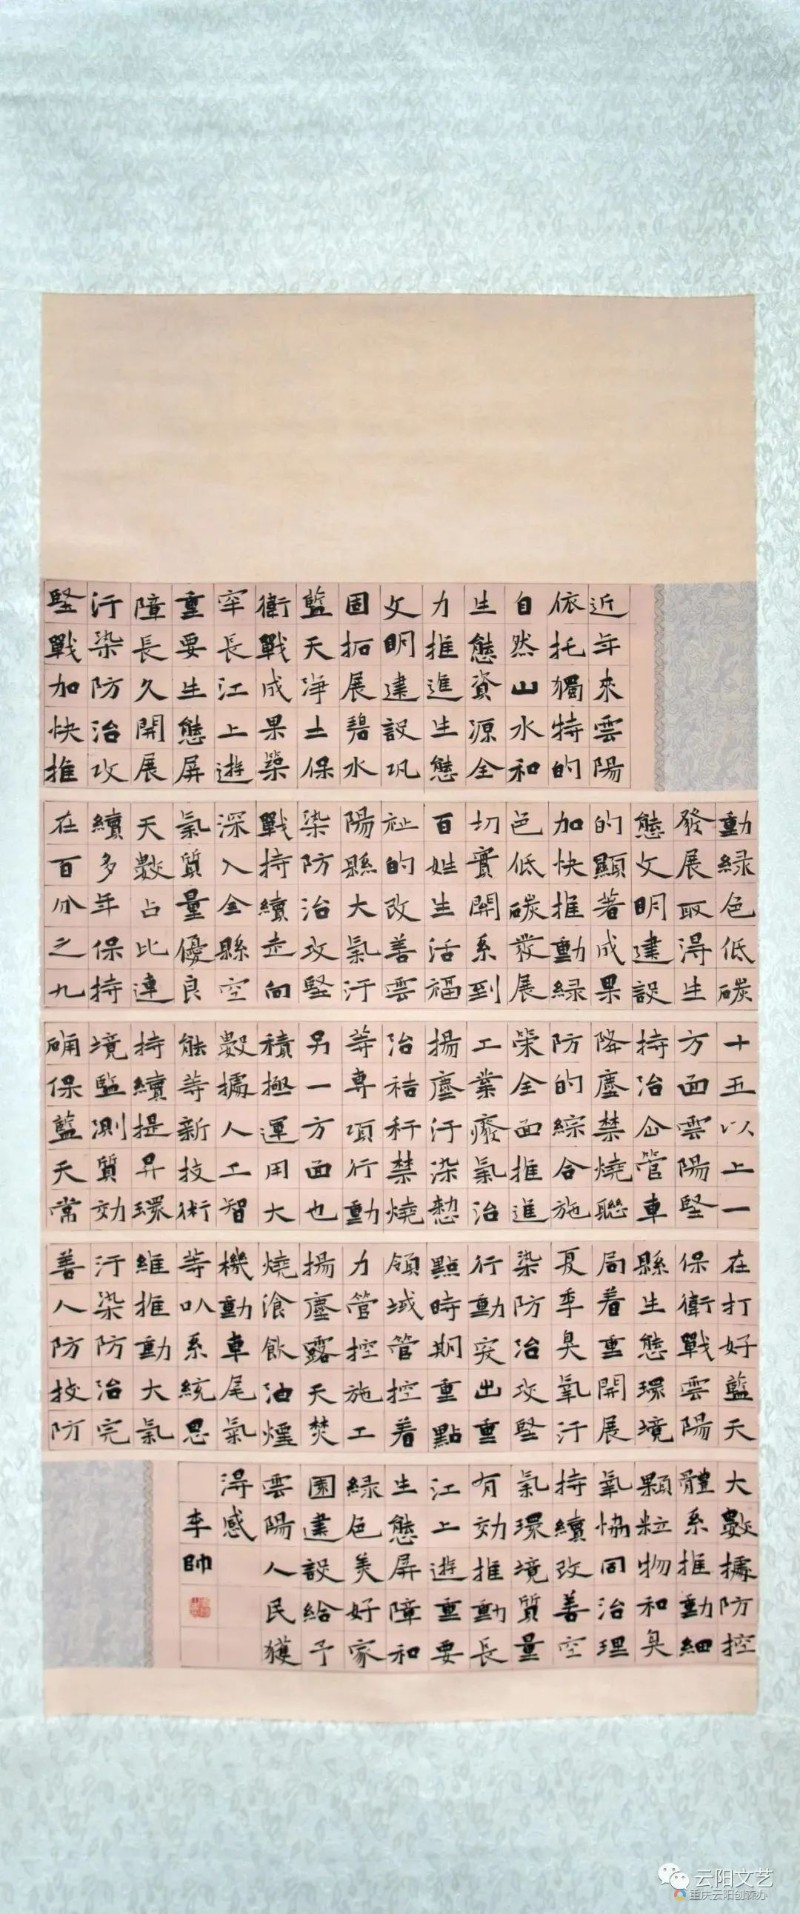 近年來雲陽
依托獨特的
自然山水和
生態資源全
力推進生態
文明建設巩
固拓展碧水
藍天淨土保
衛戰成果築
牢長江上遊
重要生態屏
障長久開展
汙染防治攻
堅戰加快推
動綠色低碳
發展取淂生
態文明建設
的顯著成果
加快推動綠
色低碳發展
切實関系到
百姓生活福
祉的改善雲
陽縣大氣汙
染防治攻堅
戰持續走向
深入全縣空
氣質量優良
天數占比連
續多年保持
在百分之九
十五以上一
方面雲陽堅
持冶企管車
降塵禁燒聯
防的綜合施
策全面推進
工業廢氣治
揚塵汙染
治秸秆禁燒
等專項行動
另一方面也
積極運用大
數據人工智
能等新技術
持續提昇環
境監測質効
確保藍天常
在打好藍天
保衛戰雲陽
縣生態環境
局着重開展
夏季臭氧汙
染防治攻堅
行動突出重
點時期重點
領域管控着
力管控施工
揚塵露天焚
燒飡飲油煙
機動車尾氣
等叭系統思
維推動大氣
汙染防治完
善人防技防
大數據防控
體系推動細
顆粒物和臭
氧恊同治理
持續改善空
氣環境質量
有効推動長
江上遊重要
生態屏障和
綠色美好家
園建設給予
雲陽人民獲
淂感
李帥
云阳文艺
重庆云阳创研办